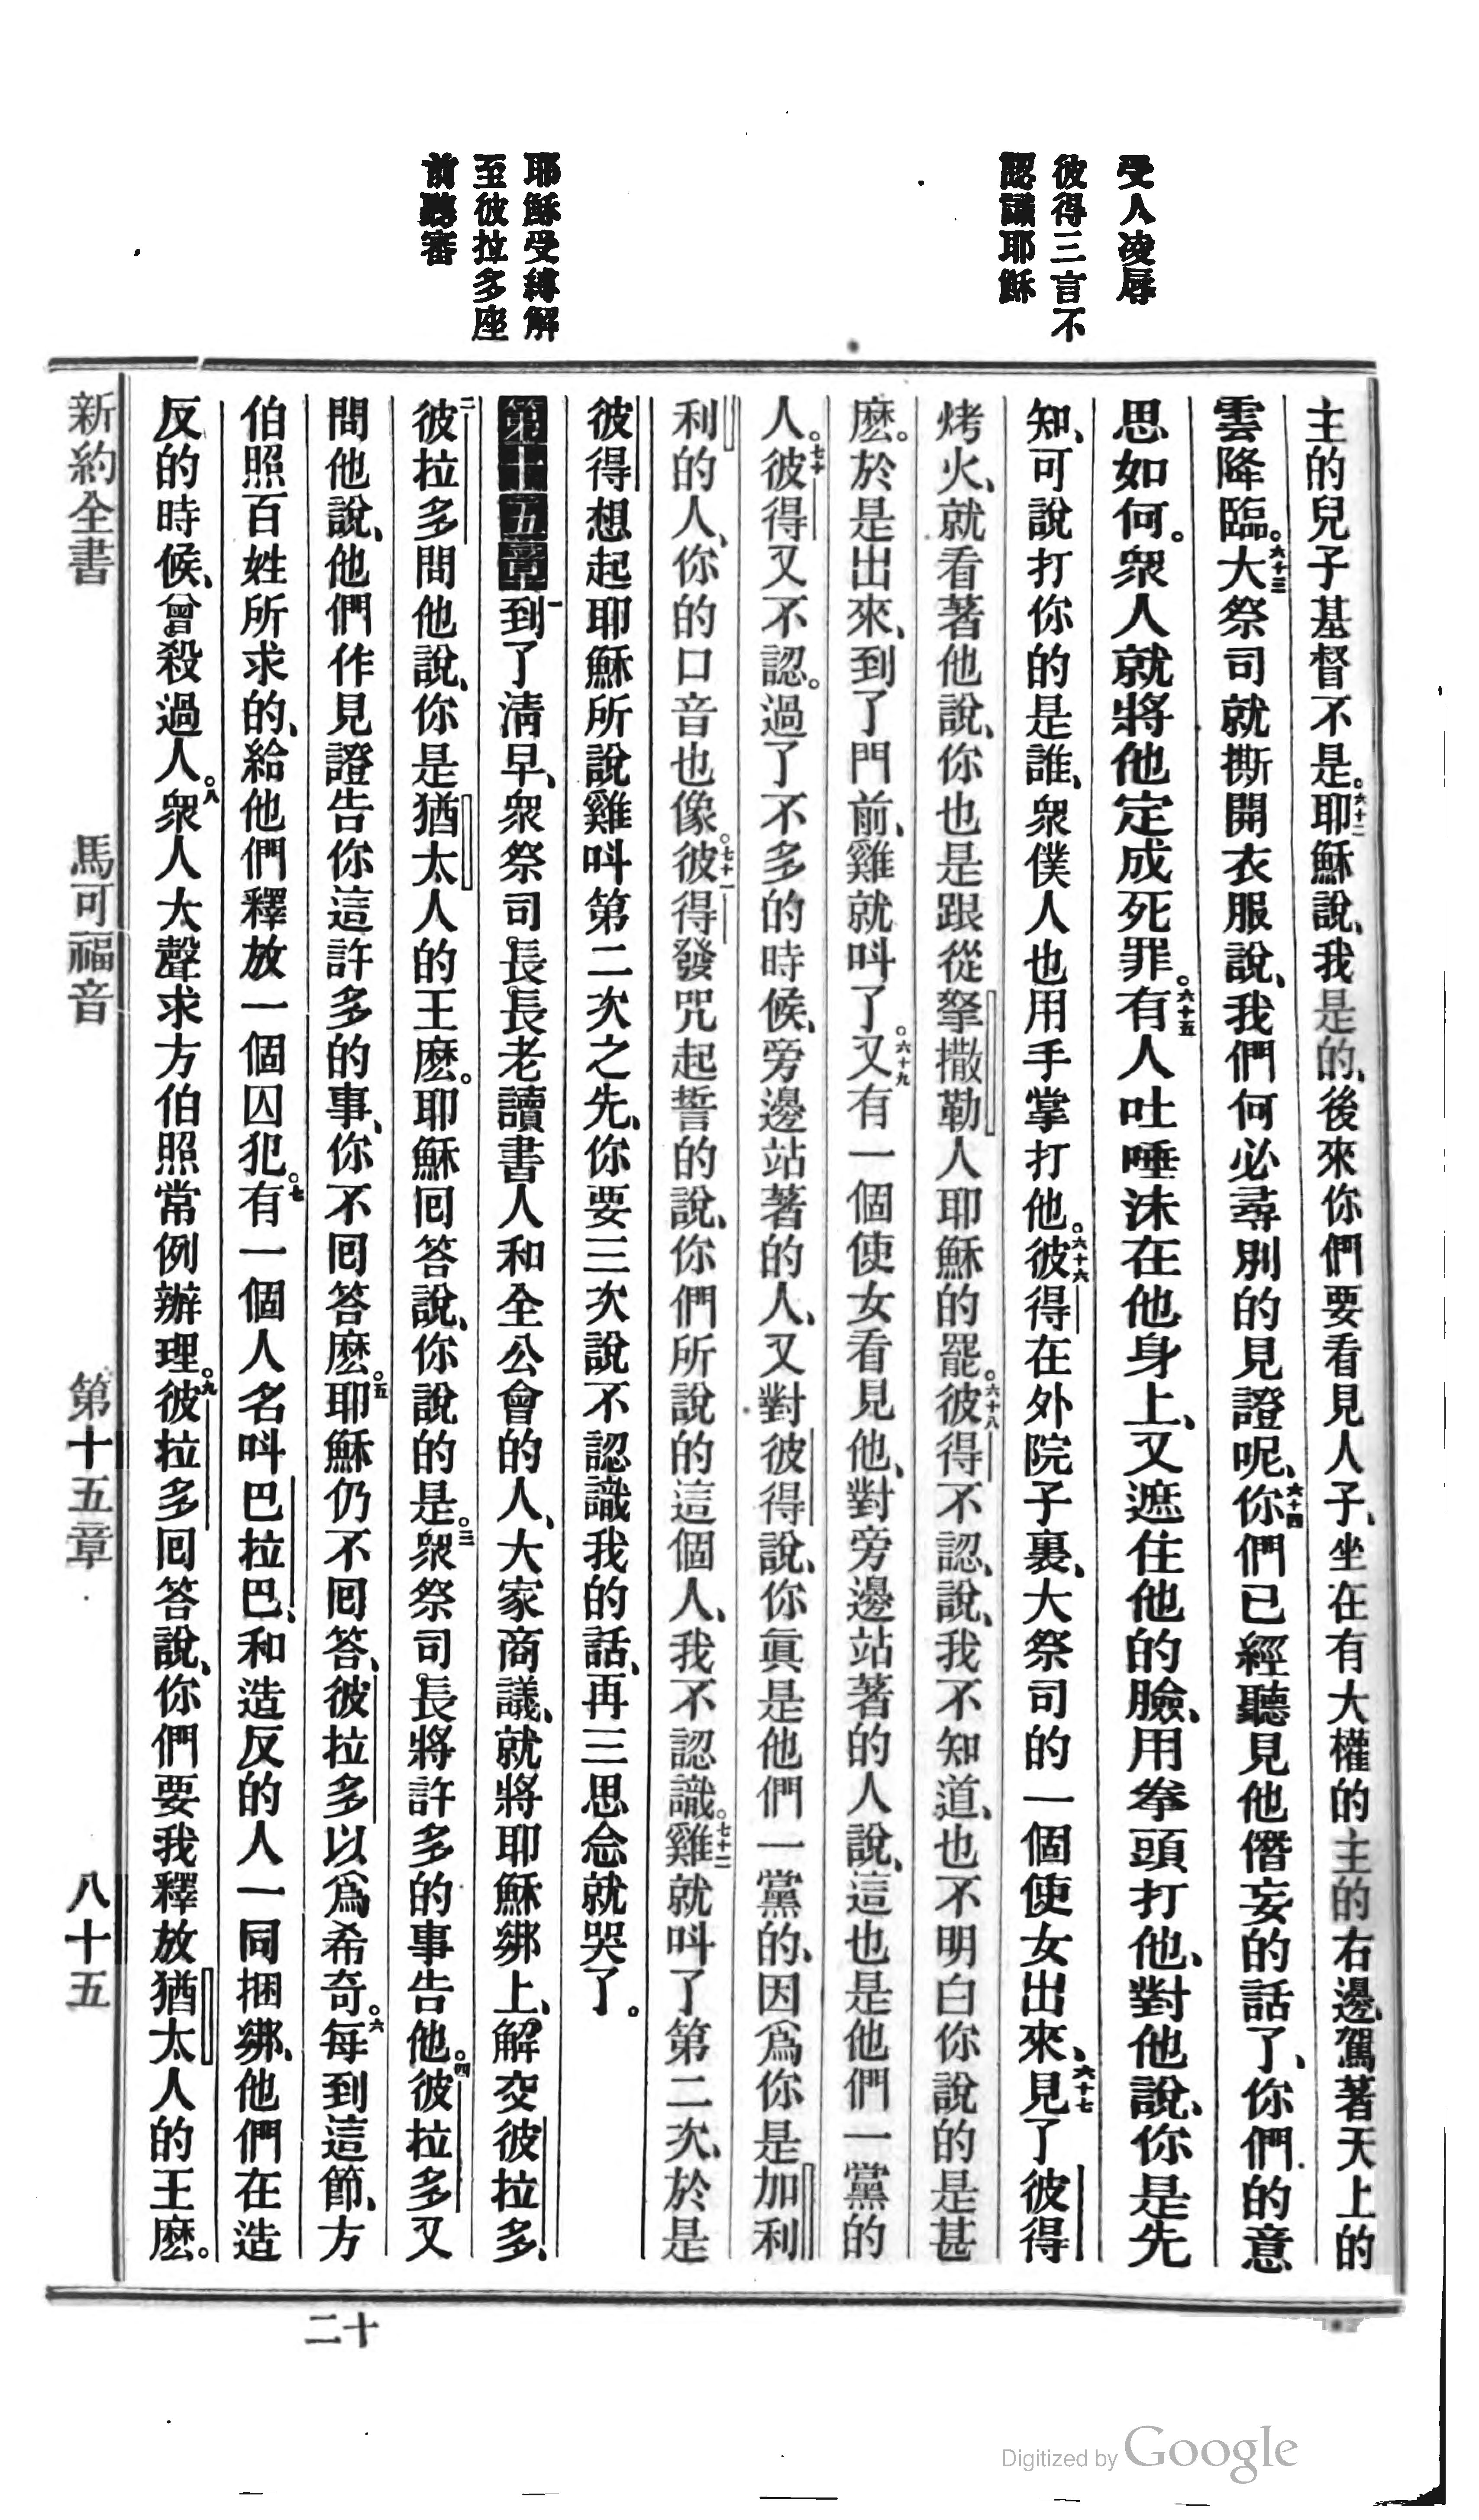 受人凌辱
彼得三言不
認識耶穌
耶穌受縛解
至彼拉多座
前聽審
主的兒子基督不是。六十二耶穌說、我是的、後來你們要看見人子、坐在有大權的主的右邊、駕著天上的
雲降臨。六十三大祭司就撕開衣服說、我們何必尋別的見證呢、六十四你們已經聽見他僭妄的話了、你們的意
思如何。衆人就將他定成死罪。六十五有人吐唾沫在他身上、又遮住他的臉、用拳頭打他、對他說、你是先
知、可說打你的是誰、衆僕人也用手掌打他。六十六彼得在外院子裏、大祭司的一個使女出來、六十七見了彼得
烤火、就看著他說、你也是跟從拏撒勒人耶穌的罷。六十八彼得不認、說、我不知道、也不明白你說的是甚
麽。於是出來、到了門前、雞就呌了。六十九又有一個使女看見他、對旁邊站著的人說、這也是他們一黨的
人。七十彼得又不認。過了不多的時候、旁邊站著的人、又對彼得說、你眞是他們一黨的、因爲你是加利
利的人、你的口音也像。七十一彼得發咒起誓的說、你們所說的這個人、我不認識。七十二雞就呌了第二次、於是
彼得想起耶穌所說雞呌第二次之先、你要三次說不認識我的話、再三思念就哭了。
第十五章一到了淸早、衆祭司長長老讀書人和全公會的人、大家商議、就將耶穌綁上、解交彼拉多、
二彼拉多問他說、你是猶太人的王麽。耶穌囘答說、你說的是。三衆祭司長將許多的事告他。四彼拉多又
問他說、他們作見證告你這許多的事、你不囘答麽。五耶穌仍不囘答、彼拉多以爲希奇。六每到這節、方
伯照百姓所求的、給他們釋放一個囚犯。七有一個人名呌巴拉巴、和造反的人一同捆綁、他們在造
反的時候、曾殺過人。八衆人大聲求方伯照常例辦理。九彼拉多囘答說、你們要我釋放猶太人的王麽。
新約全書 馬可福音 第十五章 八十五
二十
Digitized by Google